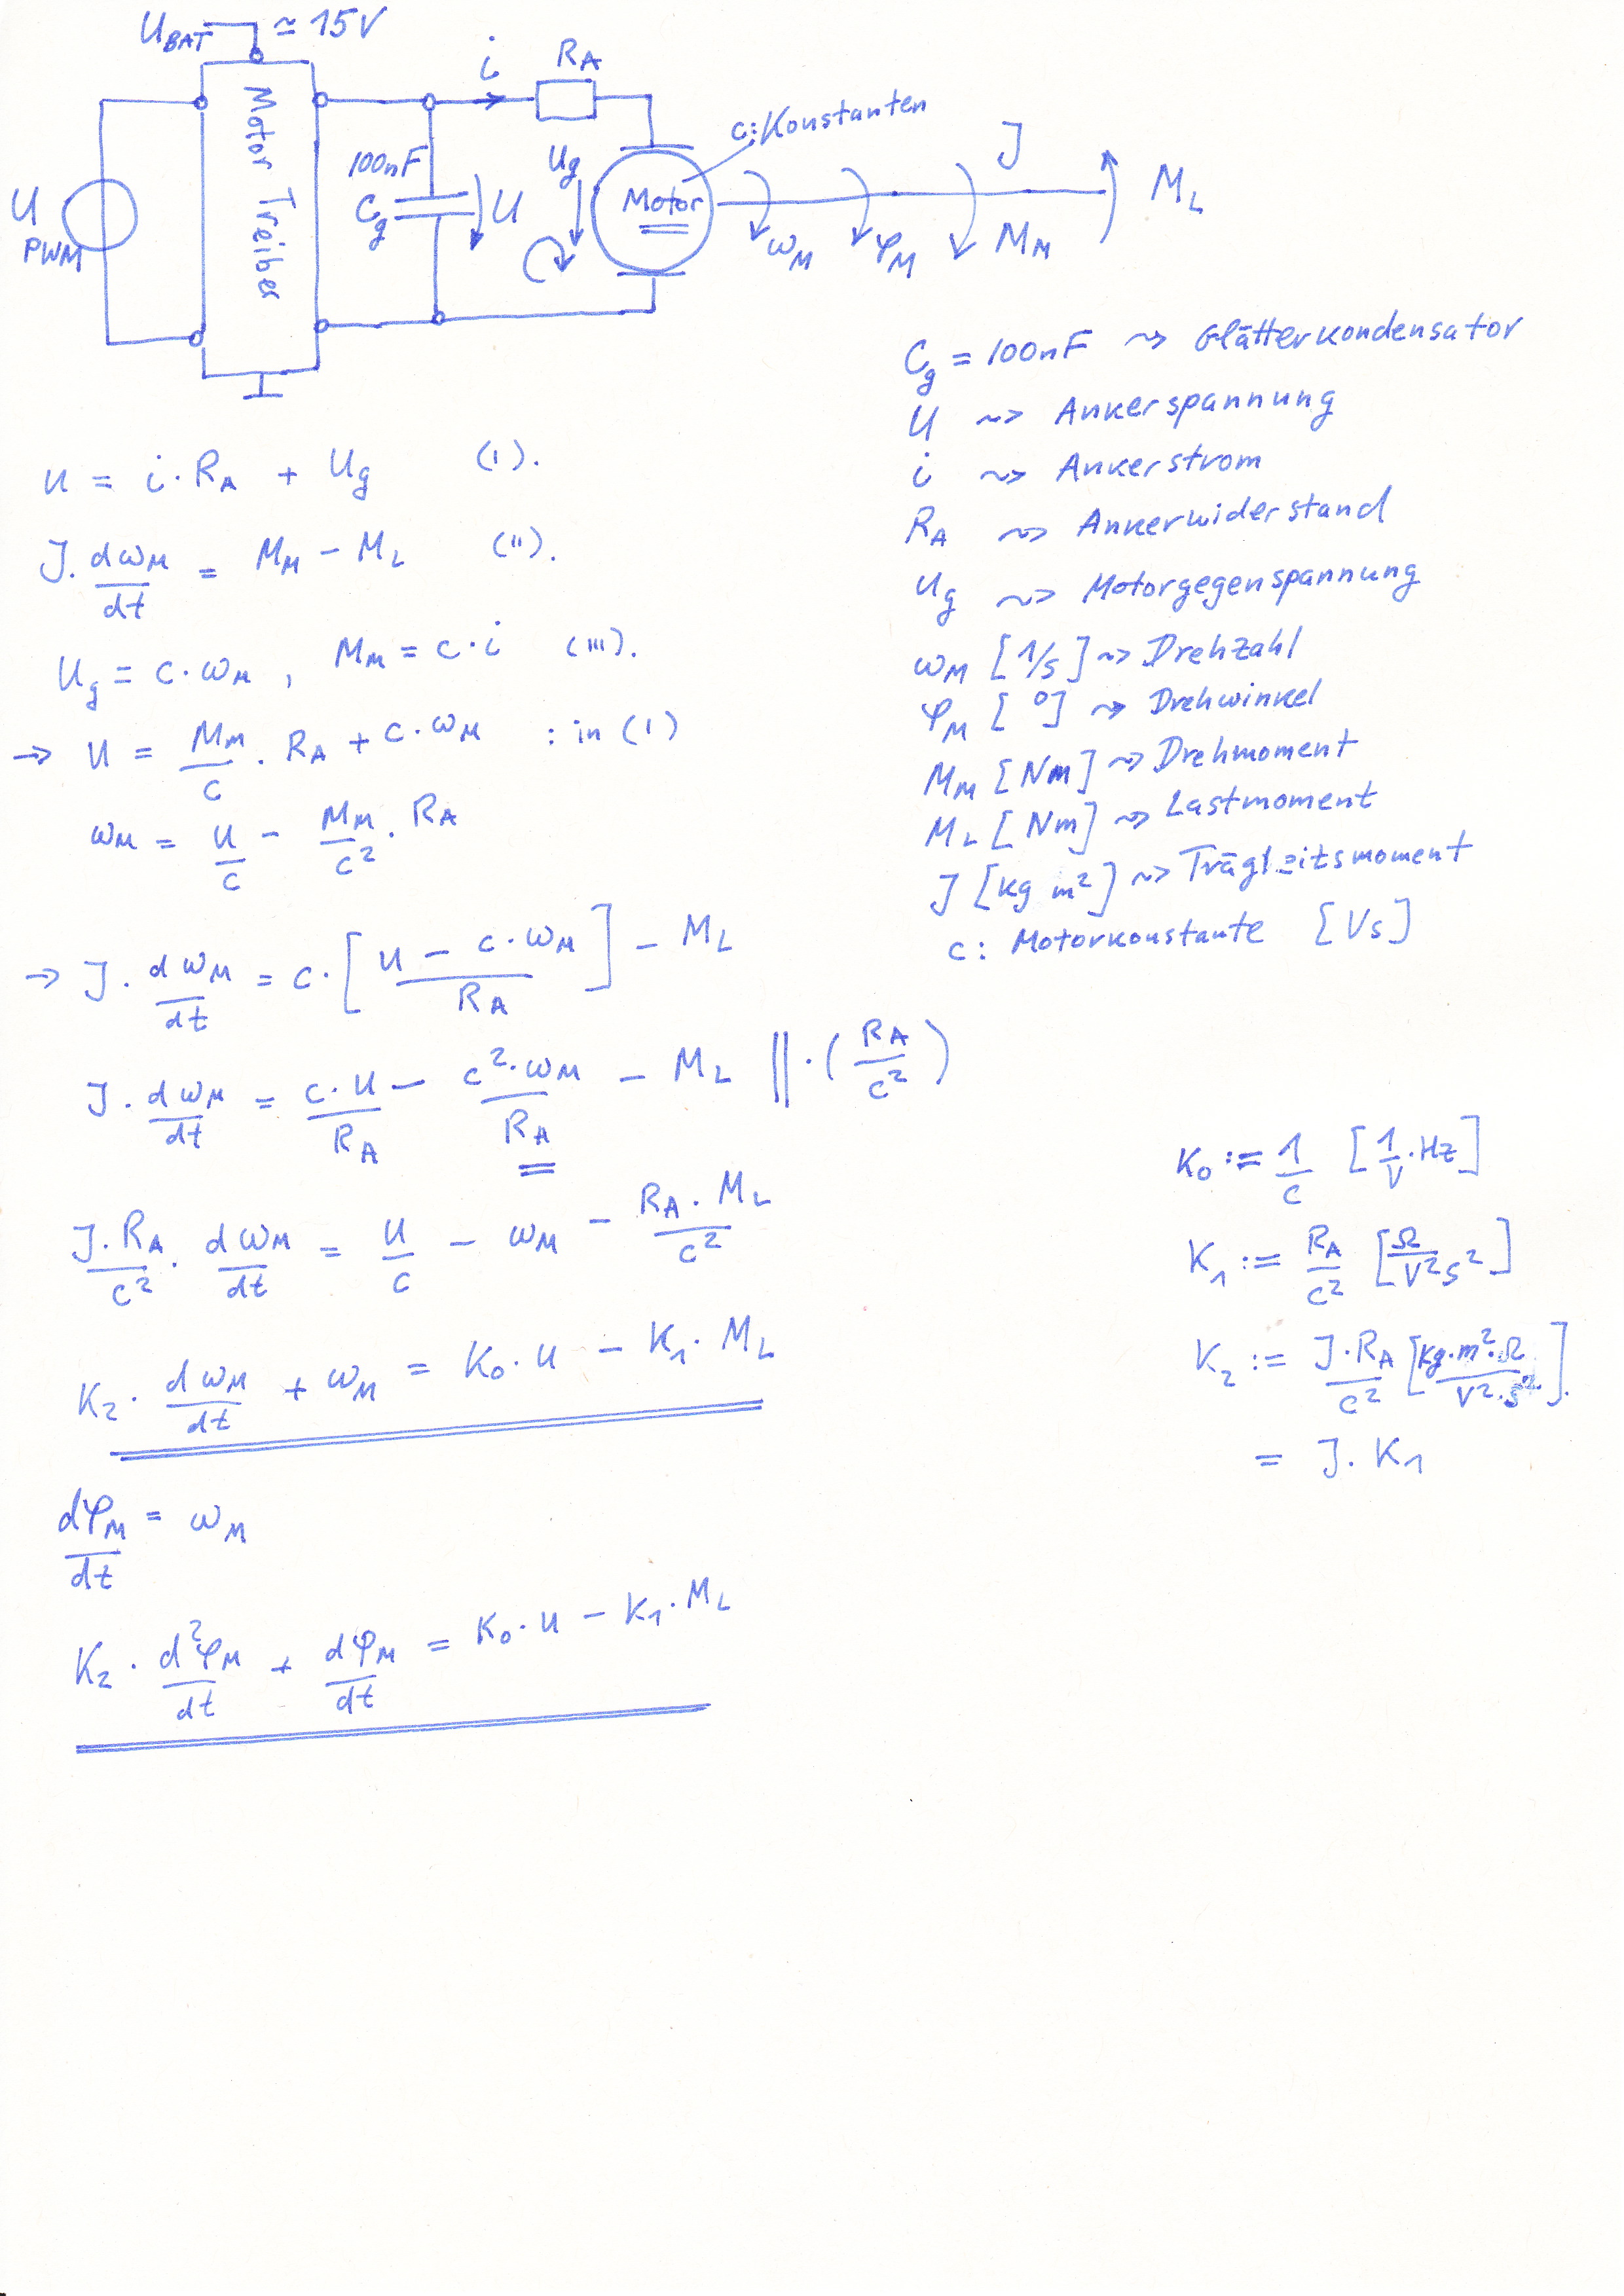 U_BAT ≃ 15V
i
R_A
c: Konstanten
Motor Treiber
100nF
C_g
U
U_g
Motor
ω_M
φ_M
M_M
J
M_L
U
PWM
C_g = 100nF ⤳ Glätterkondensator
U ⤳ Ankerspannung
i ⤳ Ankerstrom
R_A ⤳ Ankerwiderstand
U_g ⤳ Motorgegenspannung
ω_M [1/s] ⤳ Drehzahl
φ_M [°] ⤳ Drehwinkel
M_M [Nm] ⤳ Drehmoment
M_L [Nm] ⤳ Lastmoment
J [kg m²] ⤳ Trägheitsmoment
c: Motorkonstante [Vs]
U = i · R_A + U_g (I).
J · dω_M/dt = M_M − M_L (II).
U_g = c · ω_M , M_M = c · i (III).
→ U = M_M/c · R_A + c · ω_M : in (I)
ω_M = U/c − M_M/c² · R_A
→ J · dω_M/dt = c · [(U − c · ω_M)/R_A] − M_L
J · dω_M/dt = c · U/R_A − c² · ω_M/R_A − M_L || · (R_A/c²)
J · R_A/c² · dω_M/dt = U/c − ω_M − R_A · M_L/c²
K_2 · dω_M/dt + ω_M = K_0 · U − K_1 · M_L
dφ_M/dt = ω_M
K_2 · d²φ_M/dt + dφ_M/dt = K_0 · U − K_1 · M_L
K_0 := 1/c [1/V · Hz]
K_1 := R_A/c² [Ω/V²s²]
K_2 := J · R_A/c² [kg · m² · Ω/V² · s²].
= J · K_1